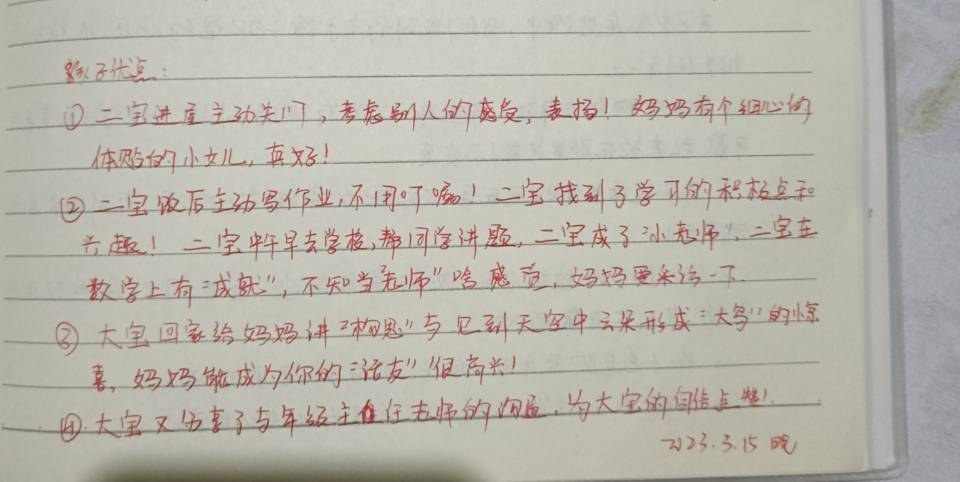 孩子优点:
① 二宝进屋主动关门,考虑别人的感受,表扬!妈妈有个细心的
体贴的小女儿,真好!
② 二宝饭后主动写作业,不用叮嘱!二宝找到了学习的积极点和
兴趣!二宝中午早去学校,帮同学讲题,二宝成了“小老师”,二宝在
数学上有“成就”,不知当“老师”啥感觉,妈妈要采访一下.
③ 大宝回家给妈妈讲“构思”与见到天空中云朵形成“大鸟”的惊
喜,妈妈能成为你的“话友”很高兴!
④ 大宝又分享了与年级主任老师的沟通,为大宝的自信点赞!
2023.3.15 晚